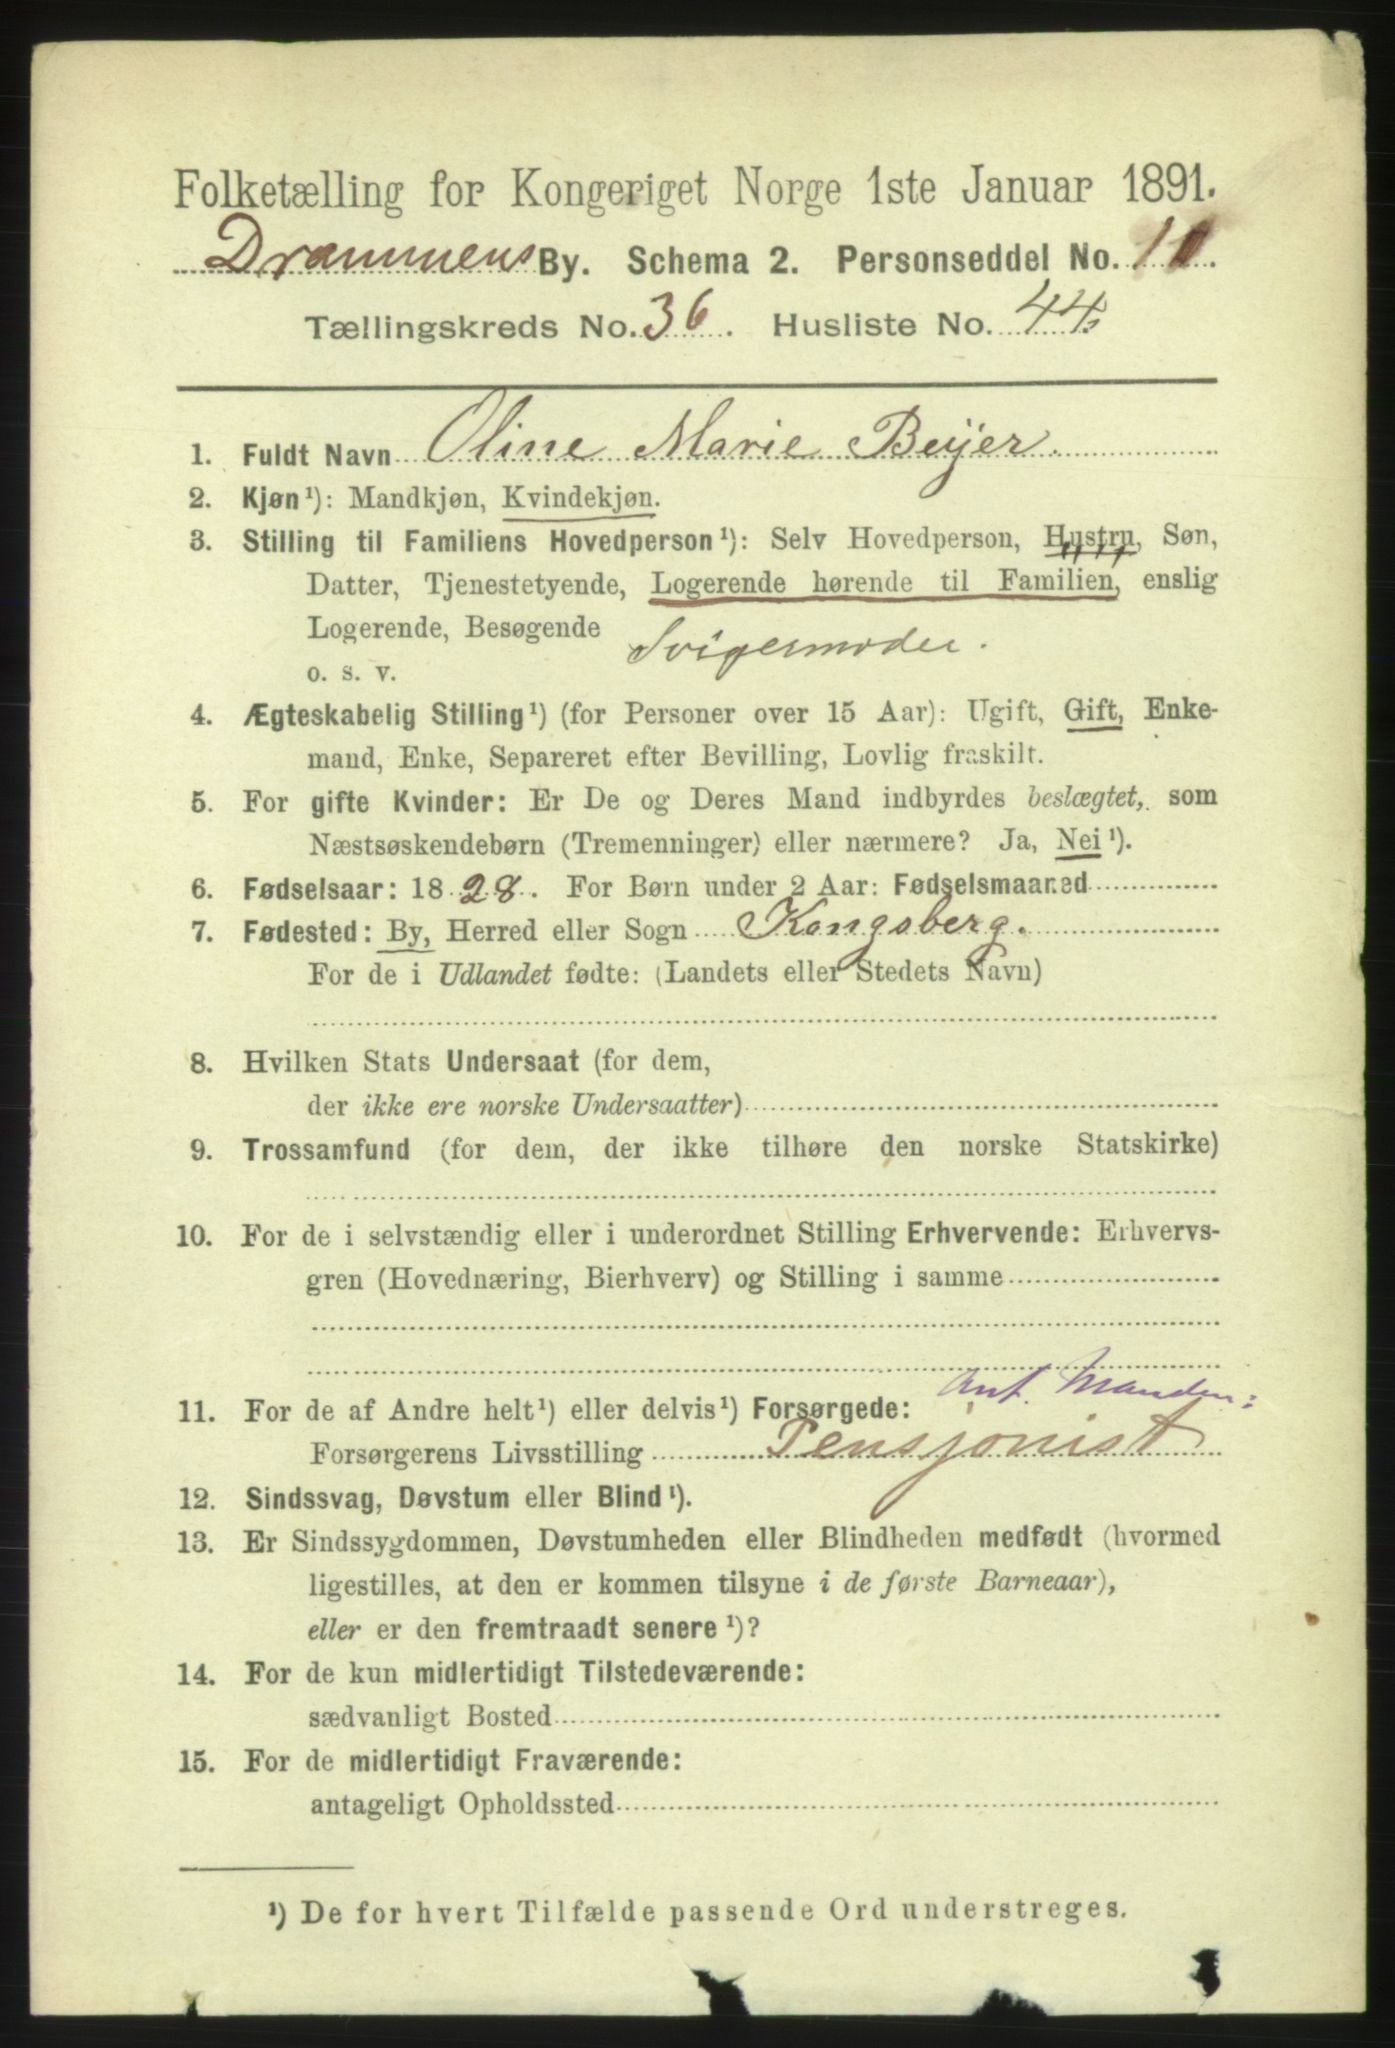 Folketælling for Kongeriget Norge 1ste Januar 1891.
Drammens By. Schema 2. Personseddel No. 10.
Tællingskreds No. 36. Husliste No. 44.
1. Fuldt Navn Oline Marie Beijer.
2. Kjøn¹): Mandkjøn, Kvindekjøn.
3. Stilling til Familiens Hovedperson¹): Selv Hovedperson, Hustru, Søn,
Datter, Tjenestetyende, Logerende hørende til Familien, enslig
Logerende, Besøgende
Svigermoder.
o. s. v.
4. Ægteskabelig Stilling¹) (for Personer over 15 Aar): Ugift, Gift, Enke-
mand, Enke, Separeret efter Bevilling, Lovlig fraskilt.
5. For gifte Kvinder: Er De og Deres Mand indbyrdes beslægtet, som
Næstsøskendebørn (Tremenninger) eller nærmere? Ja, Nei¹).
6. Fødselsaar: 1828. For Børn under 2 Aar: Fødselsmaaned
7. Fødested: By, Herred eller Sogn Kongsberg.
For de i Udlandet fødte: (Landets eller Stedets Navn)
8. Hvilken Stats Undersaat (for dem,
der ikke ere norske Undersaatter)
9. Trossamfund (for dem, der ikke tilhøre den norske Statskirke)
10. For de i selvstændig eller i underordnet Stilling Erhvervende: Erhvervs-
gren (Hovednæring, Bierhverv) og Stilling i samme
Ant. Manden:
11. For de af Andre helt¹) eller delvis¹) Forsørgede:
Forsørgerens Livsstilling Pensjonist
12. Sindssvag, Døvstum eller Blind¹).
13. Er Sindssygdommen, Døvstumheden eller Blindheden medfødt (hvormed
ligestilles, at den er kommen tilsyne i de første Barneaar),
eller er den fremtraadt senere¹)?
14. For de kun midlertidigt Tilstedeværende:
sædvanligt Bosted
15. For de midlertidigt Fraværende:
antageligt Opholdssted
¹) De for hvert Tilfælde passende Ord understreges.